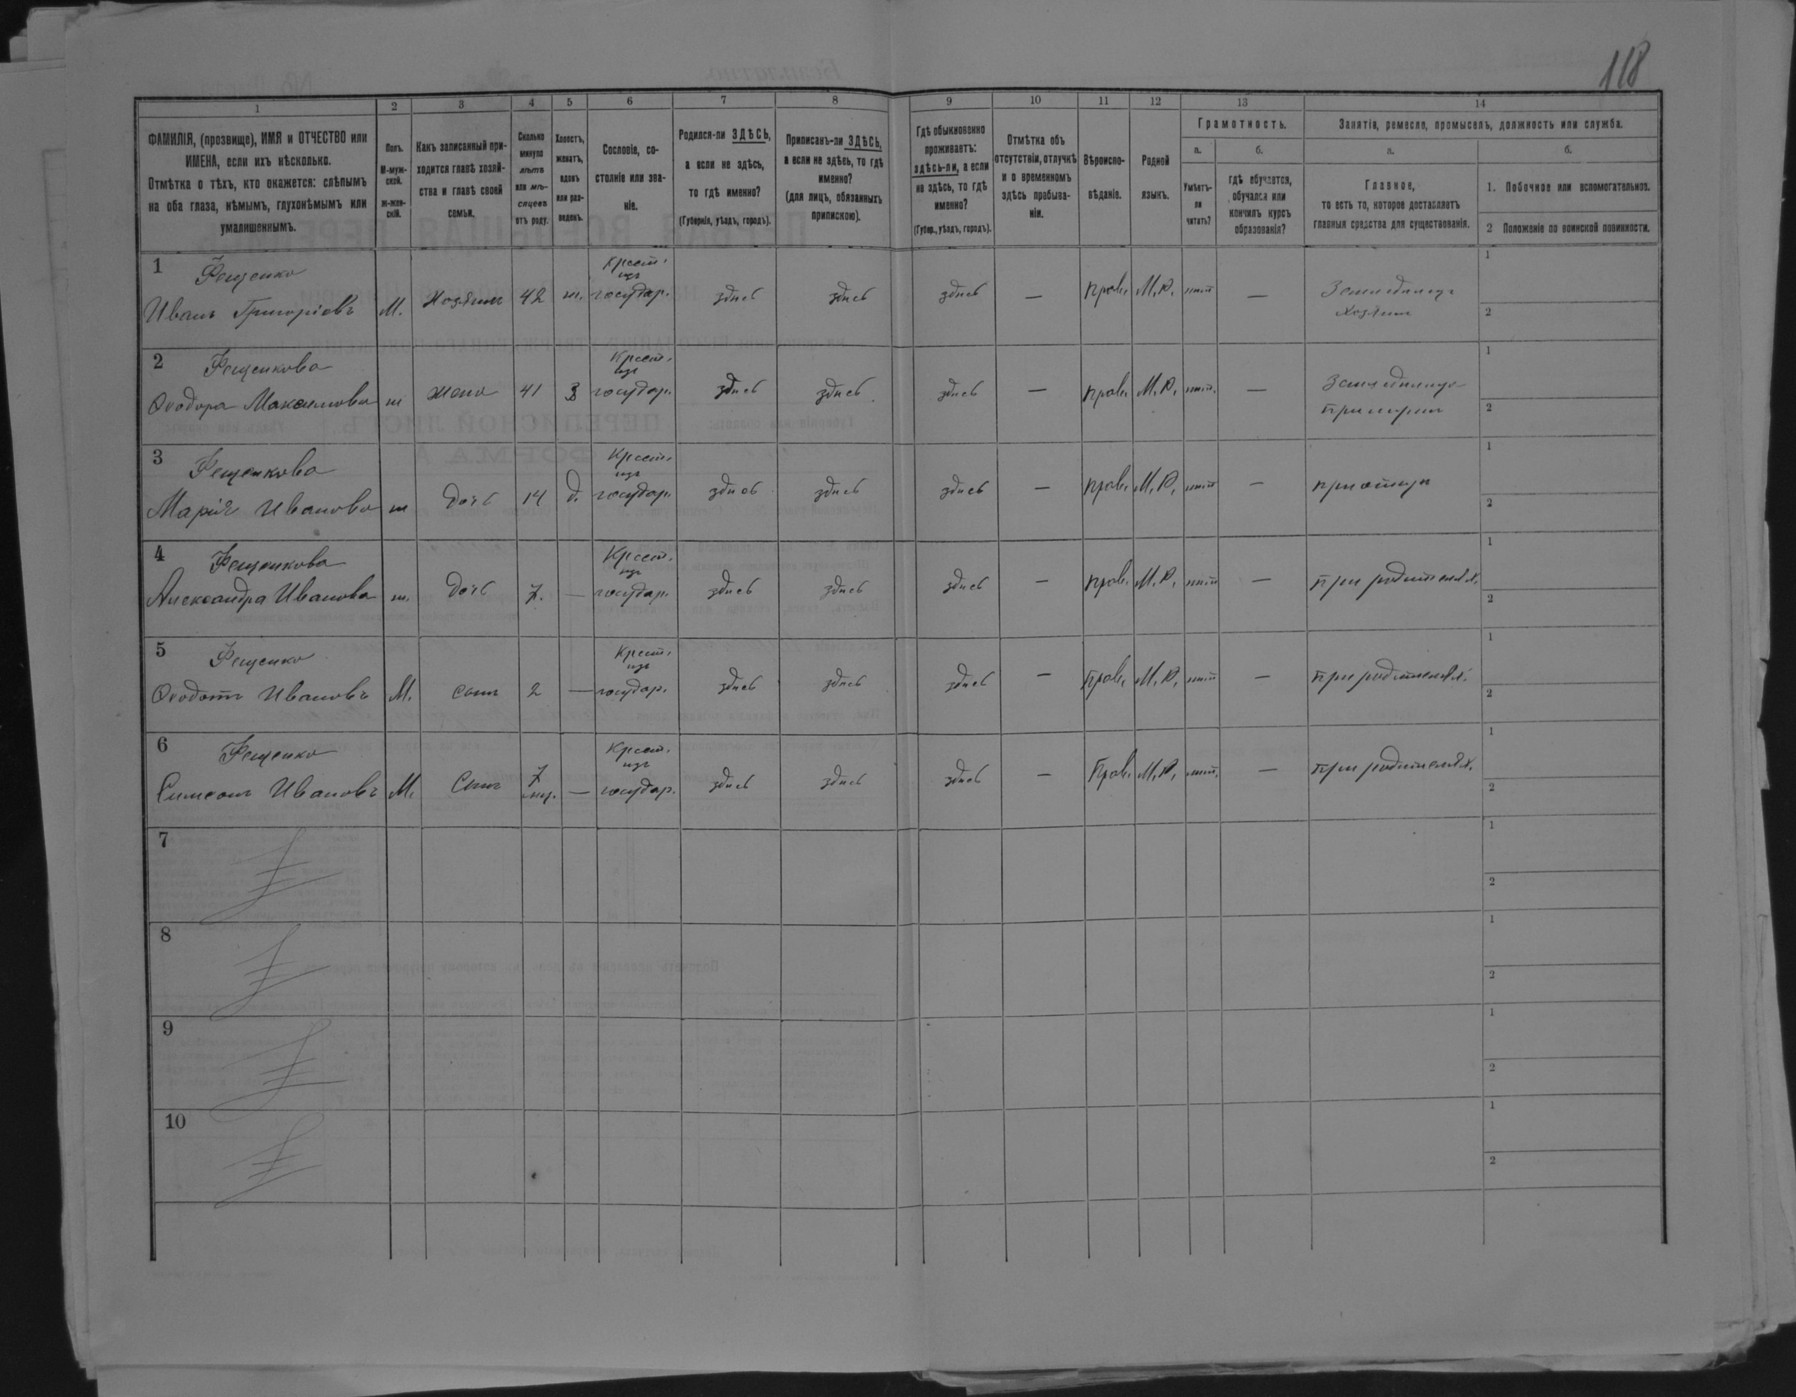 118
1 2 3 4 5 6 7 8 9 10 11 12 13 14
ФАМИЛІЯ, (прозвище), ИМЯ и ОТЧЕСТВО или ИМЕНА, если ихъ нѣсколько.
Отмѣтка о тѣхъ, кто окажется: слѣпымъ на оба глаза, нѣмымъ, глухонѣмымъ или умалишеннымъ.
Полъ.
М-муж-
ской.
Ж-жен-
скій.
Какъ записанный при-
ходится главѣ хозяй-
ства и главѣ своей
семьи.
Сколько
минуло
лѣтъ
или мѣ-
сяцевъ
отъ роду.
Холостъ,
женатъ,
вдовъ
или раз-
веденъ.
Сословіе, со-
стояніе или зва-
ніе.
Родился-ли ЗДѢСЬ,
а если не здѣсь,
то гдѣ именно?
(Губернія, уѣздъ, городъ).
Приписанъ-ли ЗДѢСЬ,
а если не здѣсь, то гдѣ
именно?
(для лицъ, обязанныхъ
припискою).
Гдѣ обыкновенно
проживаетъ:
здѣсь-ли, а если
не здѣсь, то гдѣ
именно?
(Губер., уѣздъ, городъ).
Отмѣтка объ
отсутствіи, отлучкѣ
и о временномъ
здѣсь пребыва-
ніи.
Вѣроиспо-
вѣданіе.
Родной
языкъ.
Грамотность.
а.
Умѣетъ-
ли
читать?
б.
гдѣ обучается,
обучался или
кончилъ курсъ
образованія?
Занятія, ремесло, промыселъ, должность или служба.
а.
Главное,
то есть то, которое доставляетъ
главныя средства для существованія.
б.
1. Побочное или вспомогательное.
2 Положеніе по воинской повинности.
1 Фещенко
Иванъ Григоріовъ М. Хозяинъ 42 ж. Крест. изъ государ. здись здись здись — прав. М.Р. нит — Земледилец Хозяин 1 2
2 Фещенкова
Феодора Максимова ж жена 41 З Крест. изъ государ. здись здись здись — прав. М.Р. нит. — Земледилец при муж 1 2
3 Фещенкова
Марія Иванова ж дочь 14 д. Крест. изъ государ. здись здись здись — прав. М.Р. нит — 1 2
4 Фещенкова
Александра Иванова ж. дочь 7. — Крест. изъ государ. здись здись здись — прав. М.Р. нит — при родителях. 1 2
5 Фещенко
Феодотъ Ивановъ М. сынъ 2 — Крест. изъ государ. здись здись здись — прав. М.Р. нит — при родителях. 1 2
6 Фещенко
Симеонъ Ивановъ М. Сынъ 7 мис. — Крест. изъ государ. здись здись здись — Прав. М.Р. нит. — при родителях. 1 2
7 1 2
8 1 2
9 1 2
10 1 2